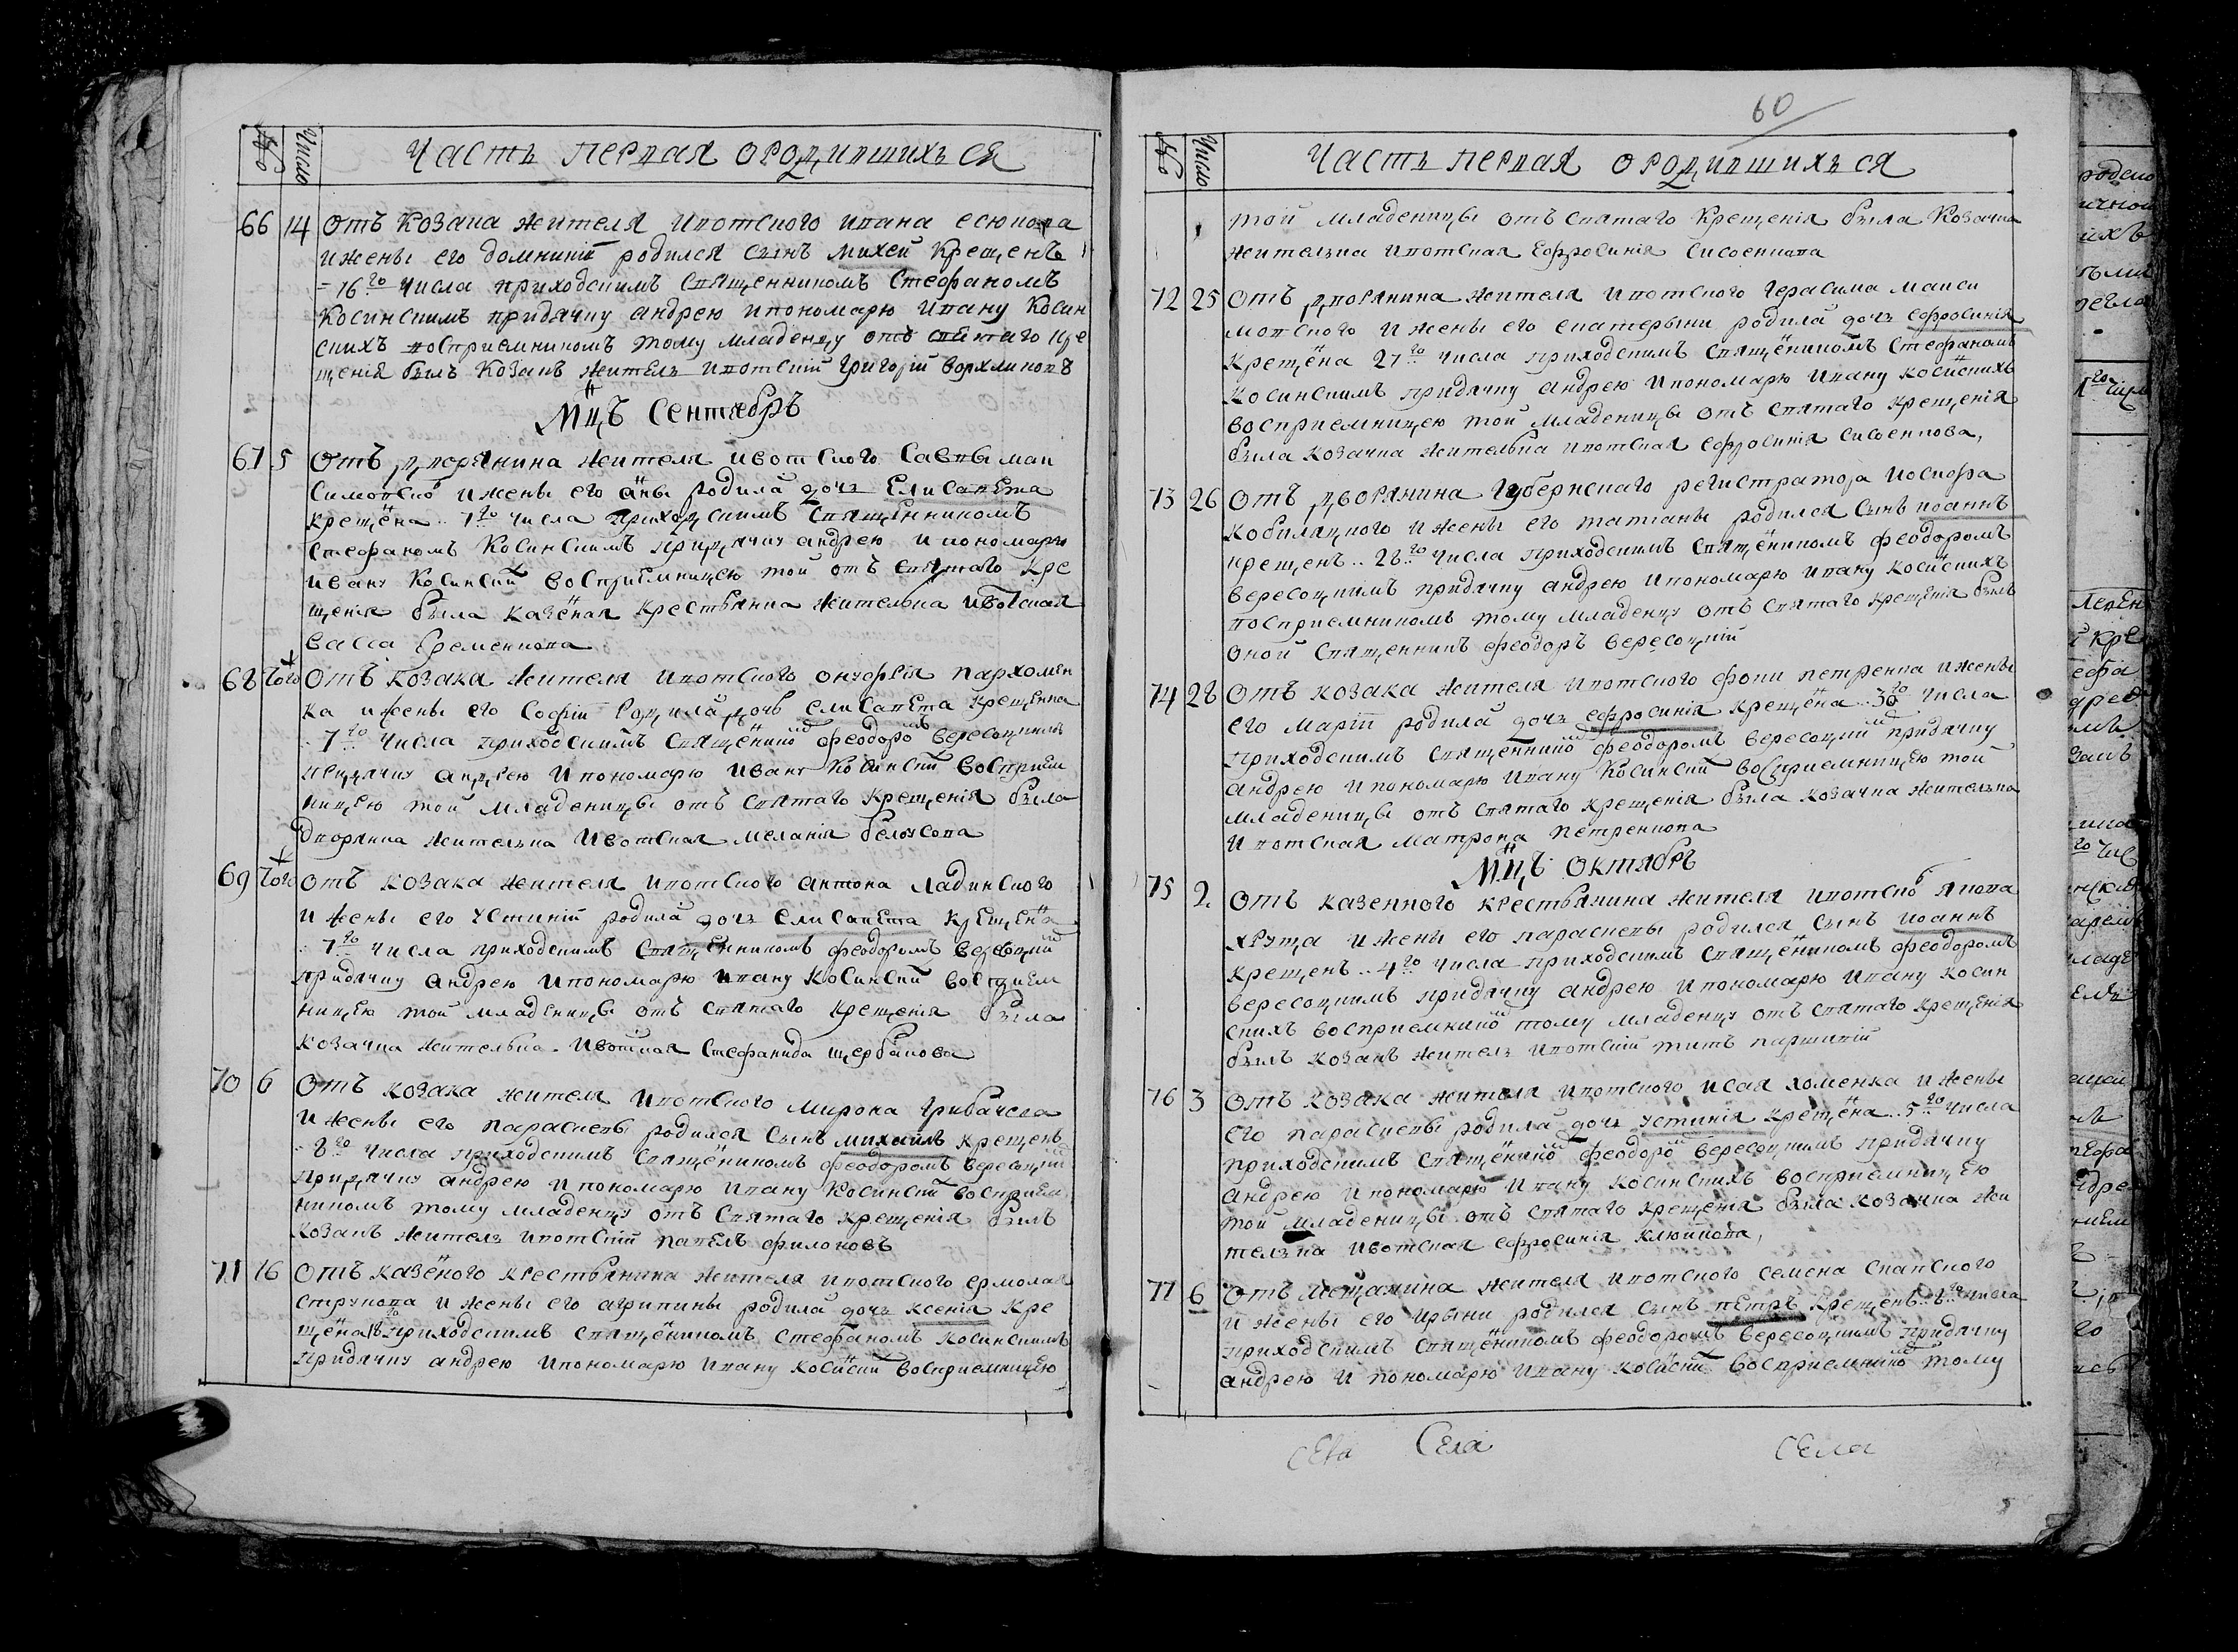 № Число Часть первая о родившихъся
66 14 Отъ козака жителя ивотского ивана есюпова
и жены его домникіи родился сынъ михей крещенъ
16го числа приходскимъ священникомъ Стефаномъ
Косинскимъ при дячку андрею и пономарю ивану Косин
скихъ восприемникомъ тому младенцу отъ святаго кре
щенія былъ козакъ житель ивотскій григорій
Мцъ Сентябръ
67 5 Отъ дворянина жителя ивотского Саввы мак
симовско и жены его аны родила дочъ Елисавета
крещена 7го числа приходскимъ священникомъ
Стефаномъ Косинскимъ при дячку андрею и пономарю
ивану Косински восприемницею той отъ святаго кре
щенія была казеная крестьянка жителька ивотская
васса Еременкова
68 того Отъ козака жителя ивотского онуфрія пархомен
ка и жены его Софіи родила дочъ елисавета крещенна
7го числа приходскимъ священико феодоро вересоцкимъ
при дячку андрею и пономарю ивану Косински восприем
ницею той младеницы отъ святаго крещенія была
дворянка жителька ивотская меланія белоусова
69 того отъ козака жителя ивотского антона ладинского
и жены его устиніи родила дочъ елисавета крещена
7го числа приходскимъ священникомъ феодоромъ вересоцки
при дячку андрею и пономарю ивану Косински восприем
ницею той младеницы отъ святаго крещенія была
козачка жителька ивотская Стефанида щербакова
70 6 Отъ козака жителя ивотского мирона грибачева
и жены его параскевы родился сынъ михаилъ крещенъ
8го числа приходскимъ священикомъ феодоромъ вересоцки
при дячку андрею и пономарю ивану Косински восприем
никомъ тому младенцу отъ святаго крещенія былъ
козакъ житель ивотскій павелъ филоновъ
71 16 Отъ казеного крестьянина жителя ивотского ермолая
струкова и жены его агрипины родила дочъ ксенія кре
щена 18го приходскимъ священикомъ стефаномъ косинскимъ
при дячку андрею и пономарю ивану косиски восприемницею
60
№ Число Часть первая о родившихъся
той младеницы отъ святаго крещенія была козачка
жителька ивотская Ефросинія Сисоенкова
72 25 Отъ дворянина жителя ивотского герасима макси
мовского и жены его екатерыни родила дочъ ефросинія
крещена 27го числа приходскимъ священикомъ Стефаномъ
косинскимъ при дячку андрею и пономарю ивану косискихъ
восприемницею той младеницы отъ святаго крещенія
была козачка жителька ивотская ефросинія сисоенкова,
73 26 Отъ дворянина губернскаго регистратора иосифа
кобиляцкого и жены его татіаны родился сынъ иоаннъ
крещенъ 28го числа приходскимъ священикомъ феодоромъ
вересоцкимъ при дячку андрею и пономарю ивану косискихъ
восприемникомъ тому младенцу отъ святаго крещенія былъ
оной священникъ феодоръ вересоцкій
74 28 Отъ козака жителя ивотского фоки петренка и жены
его марііи родила дочъ ефросинія крещена 30го числа
приходскимъ священнико феодоромъ вересоцки при дячку
андрею и пономарю ивану косински восприемницею той
младеницы отъ святаго крещенія была козачка жителька
ивотская матрона петренкова
Мцъ Октябръ
75 2. Отъ казенного крестьянина жителя ивотско якова
хруща и жены его параскевы родился сынъ иоаннъ
крещенъ 4го числа приходскимъ священикомъ феодоромъ
вересоцкимъ при дячку андрею и пономарю ивану косин
скихъ восприемнико тому младенцу отъ святаго крещенія
былъ козакъ житель ивотскій титъ
76 3 Отъ козака жителя ивотского исая хоменка и жены
его параскевы родила дочъ устинія крещена 5го числа
приходскимъ священико феодоро вересоцкимъ при дячку
андрею и пономарю ивану косинскихъ восприемницею
той младеницы отъ святаго крещенія была козачка жи
телька ивотская ефросинія клюйкова,
77 6 Отъ мещанина жителя ивотского семена снапского
и жены его ирыни родился сынъ петръ крещенъ 8го числа
приходскимъ священикомъ феодоромъ вересоцкимъ при дячку
андрею и пономарю ивану косиски восприемнико тому
Села Села